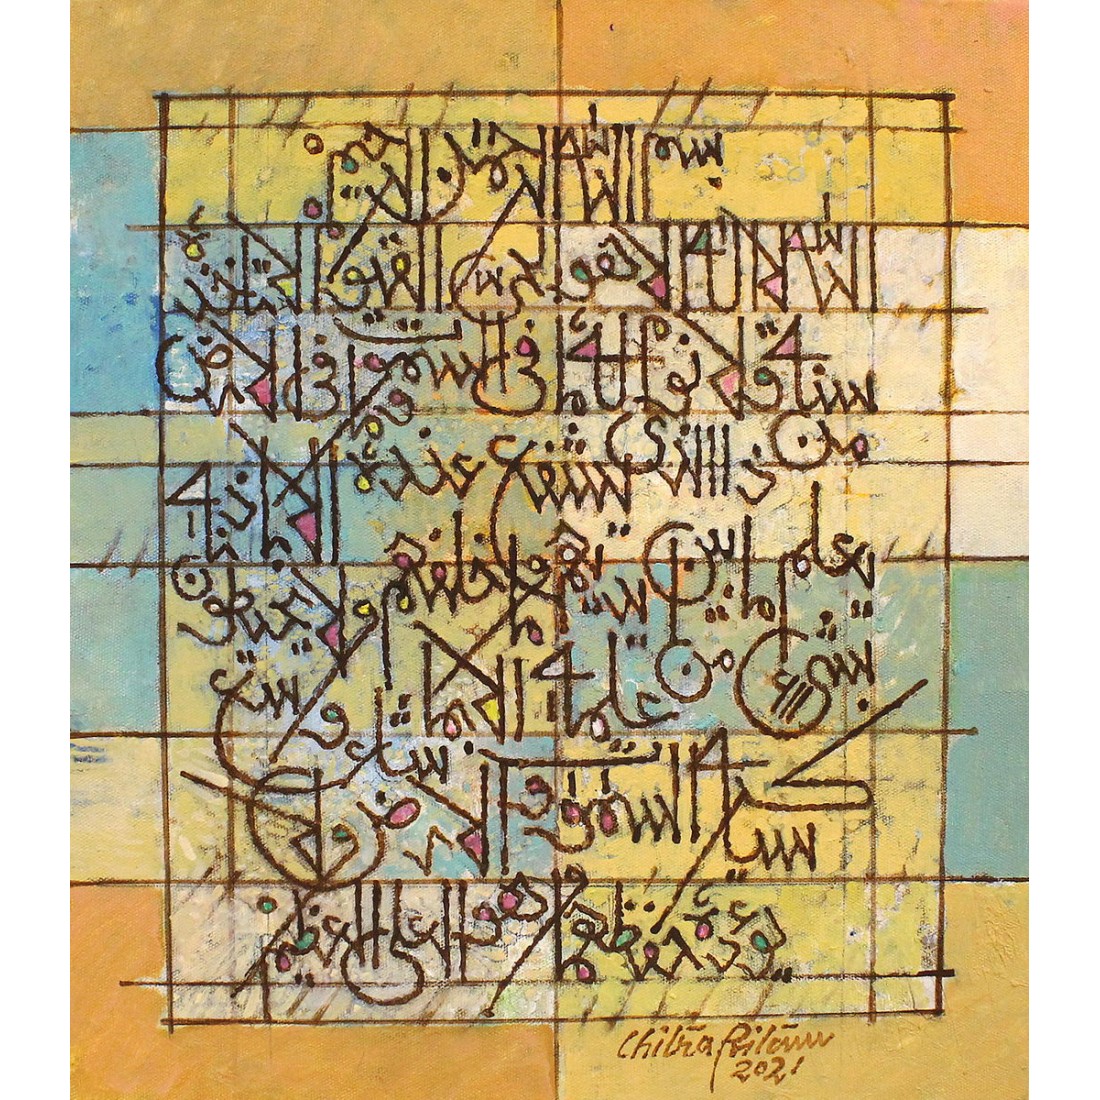 بسم الله الرحمن الرحيم
الله لا اله الا هو الحي القيوم لا تأخذه
سنة ولا نوم له ما في السموت وما في الارض
من ذا الذي يشفع عنده الا باذنه
يعلم ما بين ايديهم وما خلفهم ولا يحيطون
بشيء من علمه الا بما شاء وسع
كرسيه السموت والارض ولا
يؤده حفظهما وهو العلي العظيم
Chitra Pritam
2021